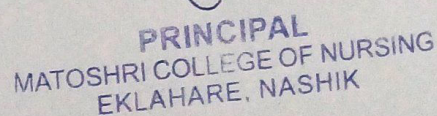 PRINCIPAL
MATOSHRI COLLEGE OF NURSING
EKLAHARE, NASHIK